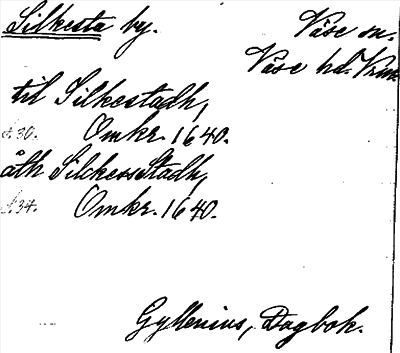 Silkesta by. Väse sn.
Väse hd. Vrml.
til Silkestadh,
s. 30. Omkr. 1640.
åth SilckessStadh,
s. 34. Omkr. 1640.
Gyllenius, Dagbok.